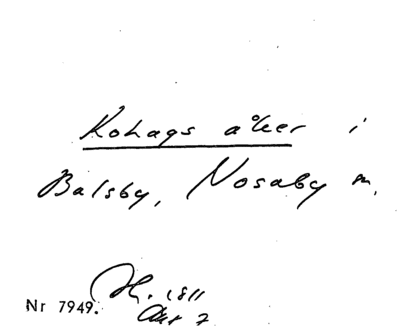 Kohags åker i
Balsby, Nosaby m.
H. 1811
Akt 7
Nr 7949.